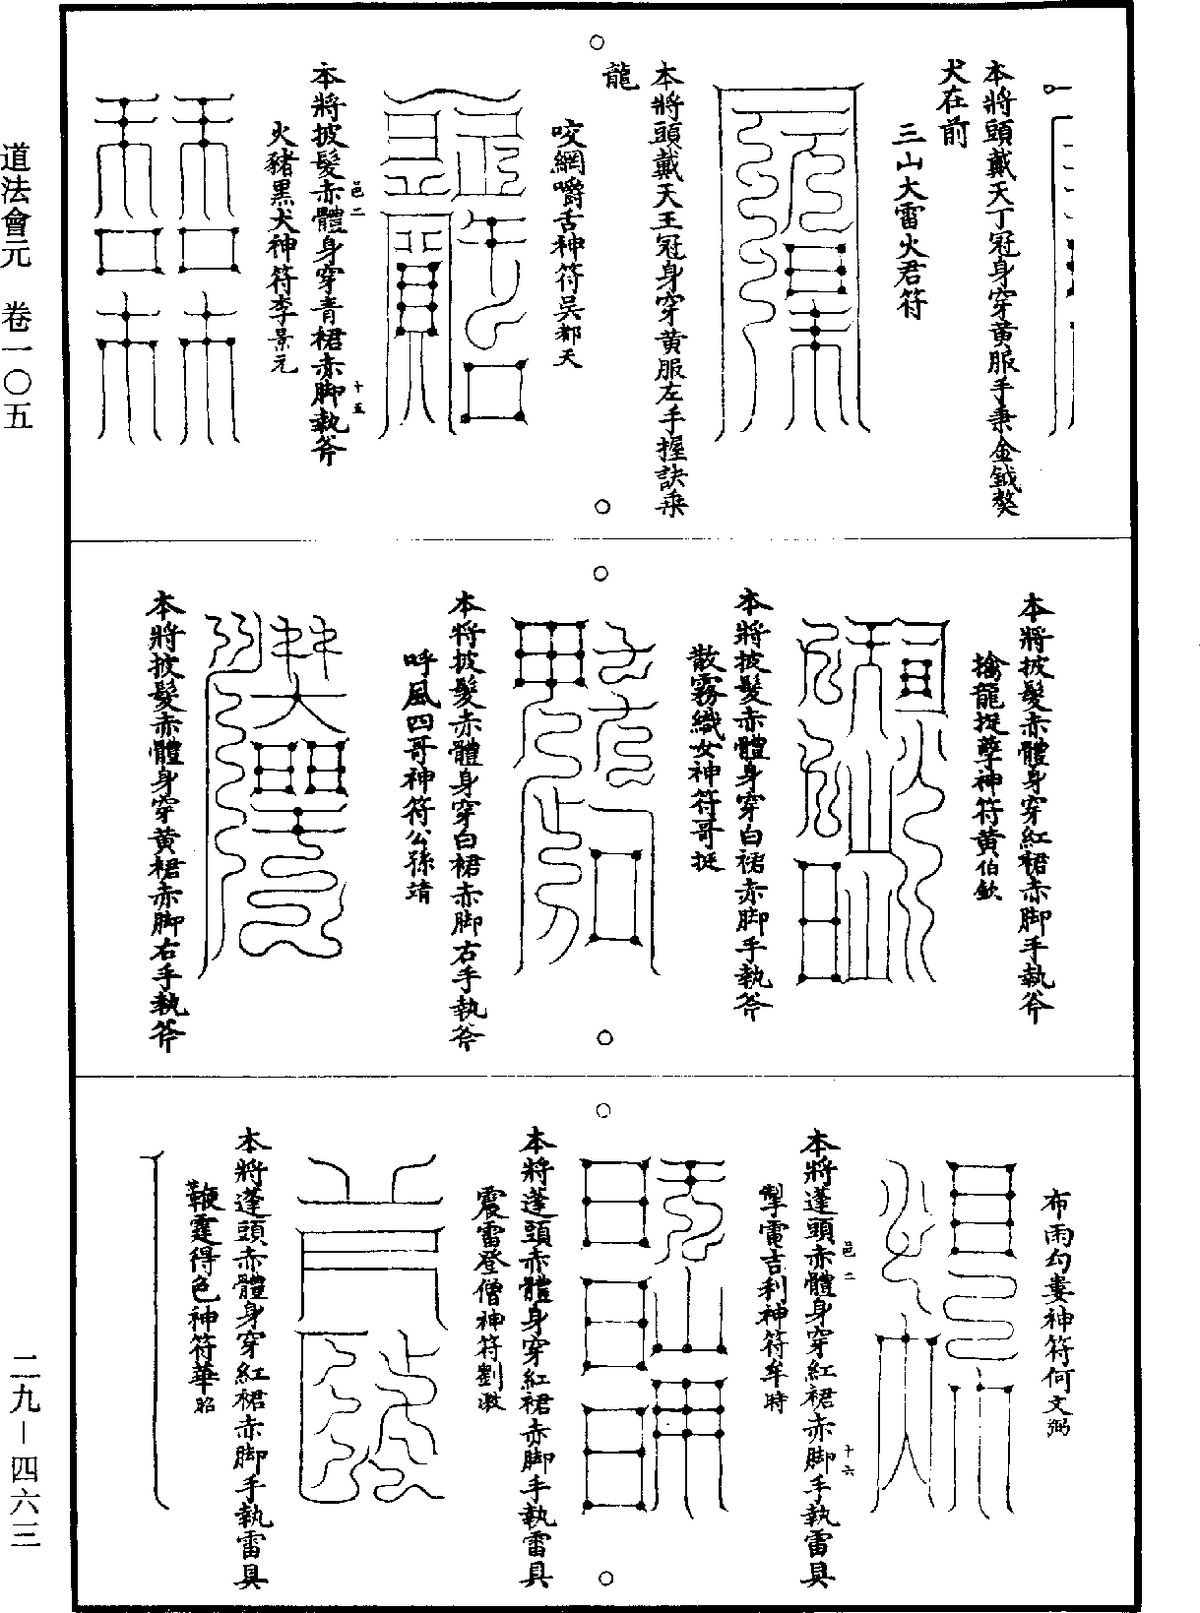 本將頭戴天丁冠身穿黃服手秉金鉞獒
犬在前
三山大雷火君符
本將頭戴天王冠身穿黃服左手握訣乘
龍
咬網嚼舌神符吳都天
本將披髮赤體身穿青裙赤脚執斧
邑二
十五
火豬黑犬神符李景元
本將披髮赤體身穿紅裙赤脚手執斧
擒龍捉孽神符黃伯欽
本將披髮赤體身穿白裙赤脚手執斧
散霧織女神符哥挺
本將披髮赤體身穿白裙赤脚右手執斧
呼風四哥神符公孫靖
本將披髮赤體身穿黃裙赤脚右手執斧
布雨勾婁神符何文弼
本將蓬頭赤體身穿紅裙赤脚手執雷具
邑二
十六
掣電吉利神符牟時
本將蓬頭赤體身穿紅裙赤脚手執雷具
震雷登僧神符劉
本將蓬頭赤體身穿紅裙赤脚手執雷具
鞭霆得色神符華昭
道法會元 卷一〇五
二九－四六三